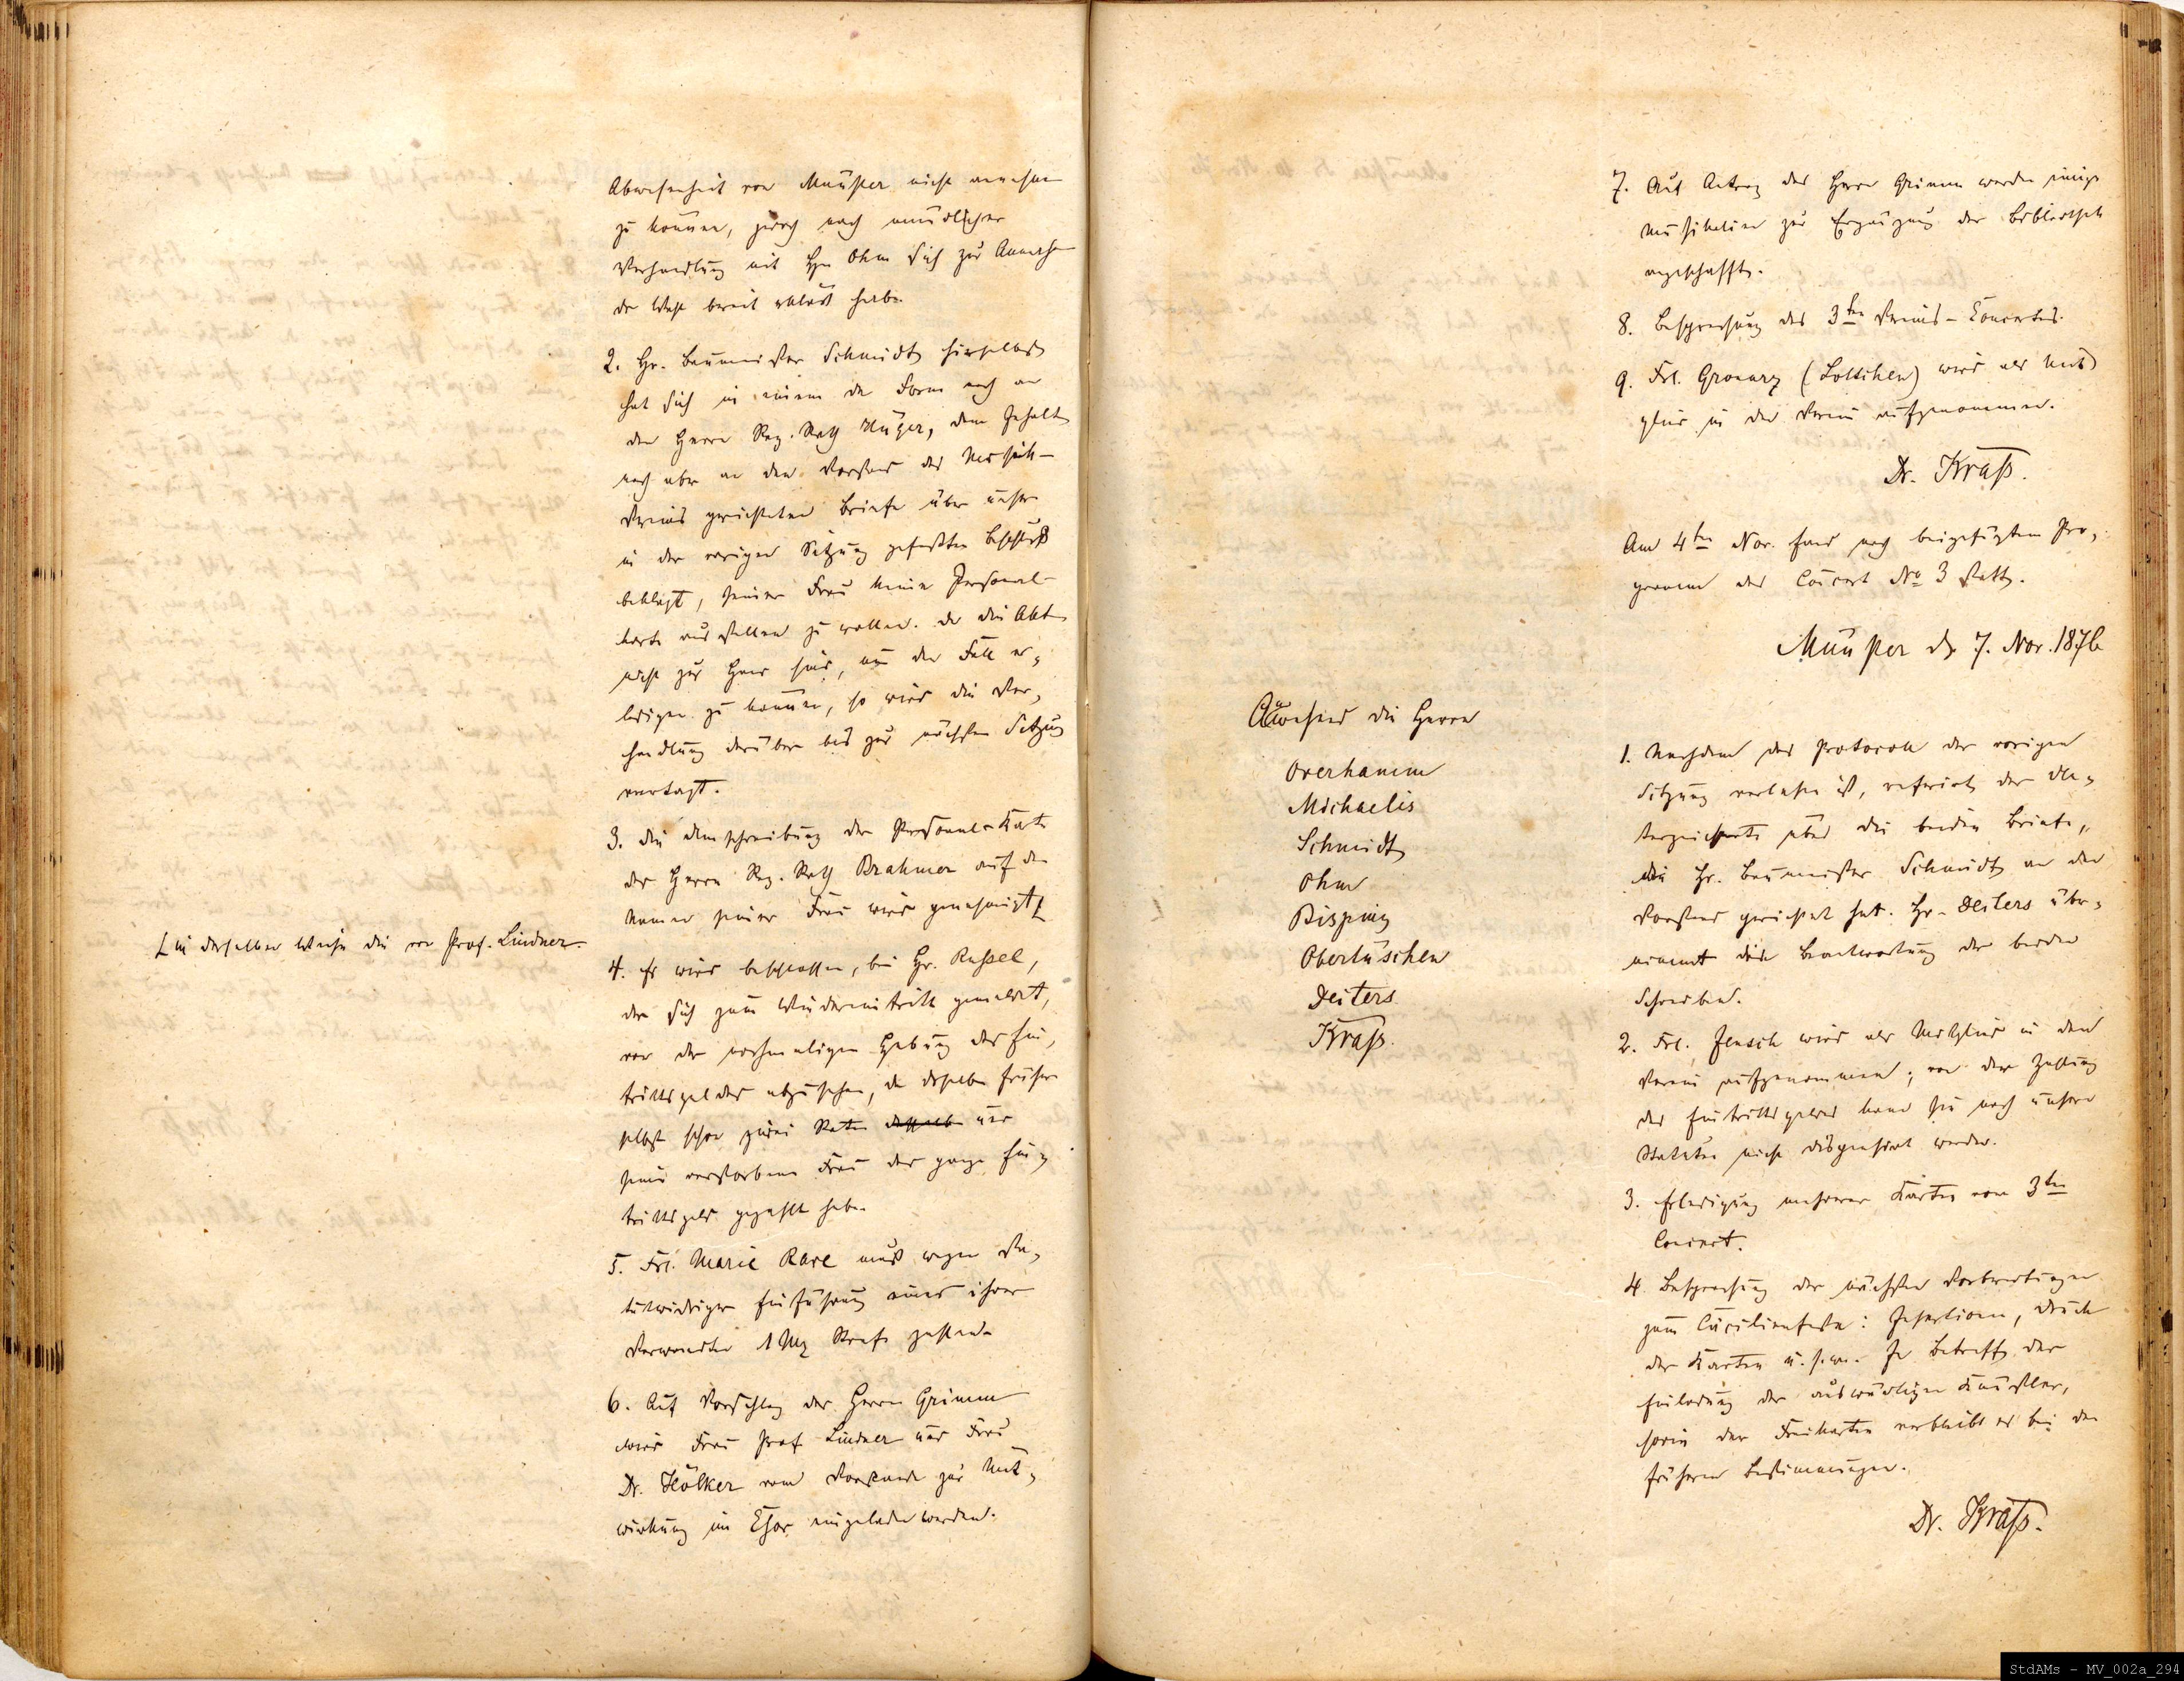 Abwesenheit von Münster nicht annehmen
zu können, jedoch nach mündlicher
Verhandlung mit Hrn Ohm sich zur Annahme
der Wahl bereit erklärt habe.
2. Hr. Baumeister Schmidt hierselbst
hat sich in einem der Form nach an
den Herrn Reg. Rath Hüger, dem Inhalt
nach aber an den Vorstand des Musik-
Vereins gerichteten Briefe über unsern
in der vorigen Sitzung gefaßten Beschluß
beklagt, seiner Frau keine Personal-
karte ausstellen zu wollen. Da die Akten
nicht zur Hand sind, um den Fall er-
ledigen zu können, so wird die Ver-
handlung darüber bis zur nächsten Sitzung
vertagt.
3. Die Umschreibung der Personal-Karte
des Herrn Reg. Rath Brahmer auf den
Namen seiner Frau wird genehmigt
in derselben Weise die von Prof. Lindner.
4. Es wird beschlossen, bei Hr. Russel,
der sich zum Wiedereintritt gemeldet,
von der nochmaligen Hebung des Ein-
trittsgeldes abzusehen, da derselbe früher
selbst schon zwei Raten desselben und
seine verstorbene Frau das ganze Ein-
trittsgeld gezahlt habe.
5. Frl. Marie Rave muß wegen sta-
tutwidriger Einführung eines ihrer
Verwandten 1 Mk Strafe zahlen.
6. Auf Vorschlag des Herrn Grimm
wird Frau Prof Lindner und Frau
Dr. Hölker vom Vorstande zur Mit-
wirkung im Chor eingeladen werden.
7. Auf Antrag des Herrn Grimm werden einige
Musikalien zur Ergänzung der Bibliothek
angeschafft.
8. Besprechung des 3ten Vereins-Concertes.
9. Frl. Gronarz (Lottchen) wird als Mit
glied in den Verein aufgenommen.
Dr. Kraß.
Am 4ten Nov. fand nach beigefügtem Pro-
gramm das Concert No 3 statt.
Münster d. 7. Nov. 1876
Anwesend die Herrn
Overhamm
Michaelis
Schmidt
Ohm
Bisping
Obertüschen
Deiters
Kraß.
1. Nachdem das Protocoll der vorigen
Sitzung verlesen ist, referirt der Un-
terzeichnete über die beiden Briefe,
die Hr. Baumeister Schmidt an den
Vorstand gerichtet hat. Hr. Deiters über-
nimmt die Beantwortung der beiden
Schreiben.
2. Frl. Jensch wird als Mitglied in den
Verein aufgenommen; von der Zahlung
des Eintrittsgeldes kann sie nach unsern
Statuten nicht dispensirt werden.
3. Erledigung mehrerer Karten vom 3ten
Concert.
4. Besprechung der nächsten Vorbereitungen
zum Cäcilienfeste: Insertionen, Druck
der Karten u.s.w. In Betreff der
Einladung der auswärtigen Künstler,
sowie der Freikarten verbleibt es bei den
früheren Bestimmungen.
Dr. Kraß.
StdAMs - MV_002a_294